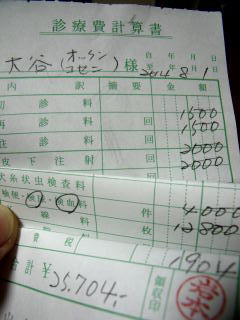 診療費計算書
自 年 月 日
大谷(オッケン コセン)様 至 2014年8月1日
内 訳 摘要 金額
初診料 1500
再診料 1500
往診料 2000
皮下注射 2000
犬糸状虫検査料
検便・検尿・検血 件 4000
線料 枚 12800
費税 1904
合計 ¥25.704.- 領収印